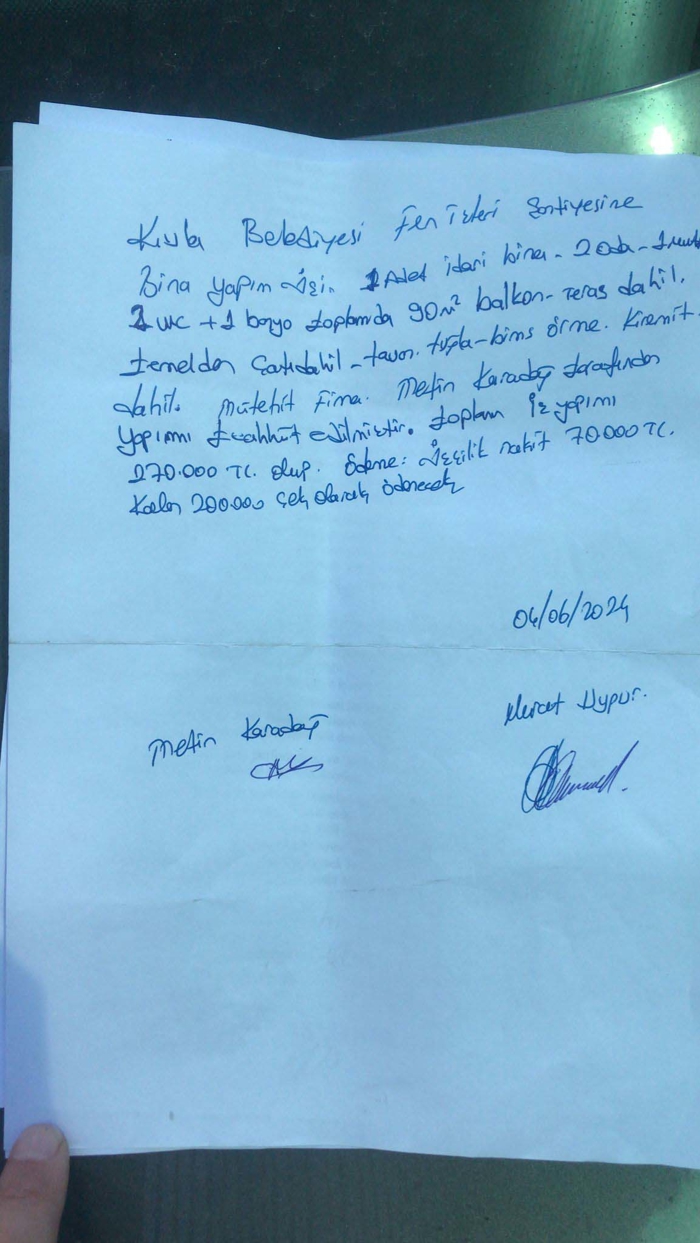 Kula Belediyesi Fen İşleri Şantiyesine
Bina yapım işi. 1 Adet idari bina - 2 oda - 1
1 wc + 1 banyo toplamda 90 m² balkon - teras dahil.
temelden Çatıdahil - tavan. tuğla - bims örme. Kiremit -
dahil. Mütehit Firma. Metin Karadağ tarafından
yapımı teahhüt edilmiştir. toplam iş yapımı
270.000 TC. olup. Ödeme: işçilik nakit 70.000 TC.
Kalan 200.000 çek olarak ödenecek
04/06/2024
Metin Karadağ
Uypur.